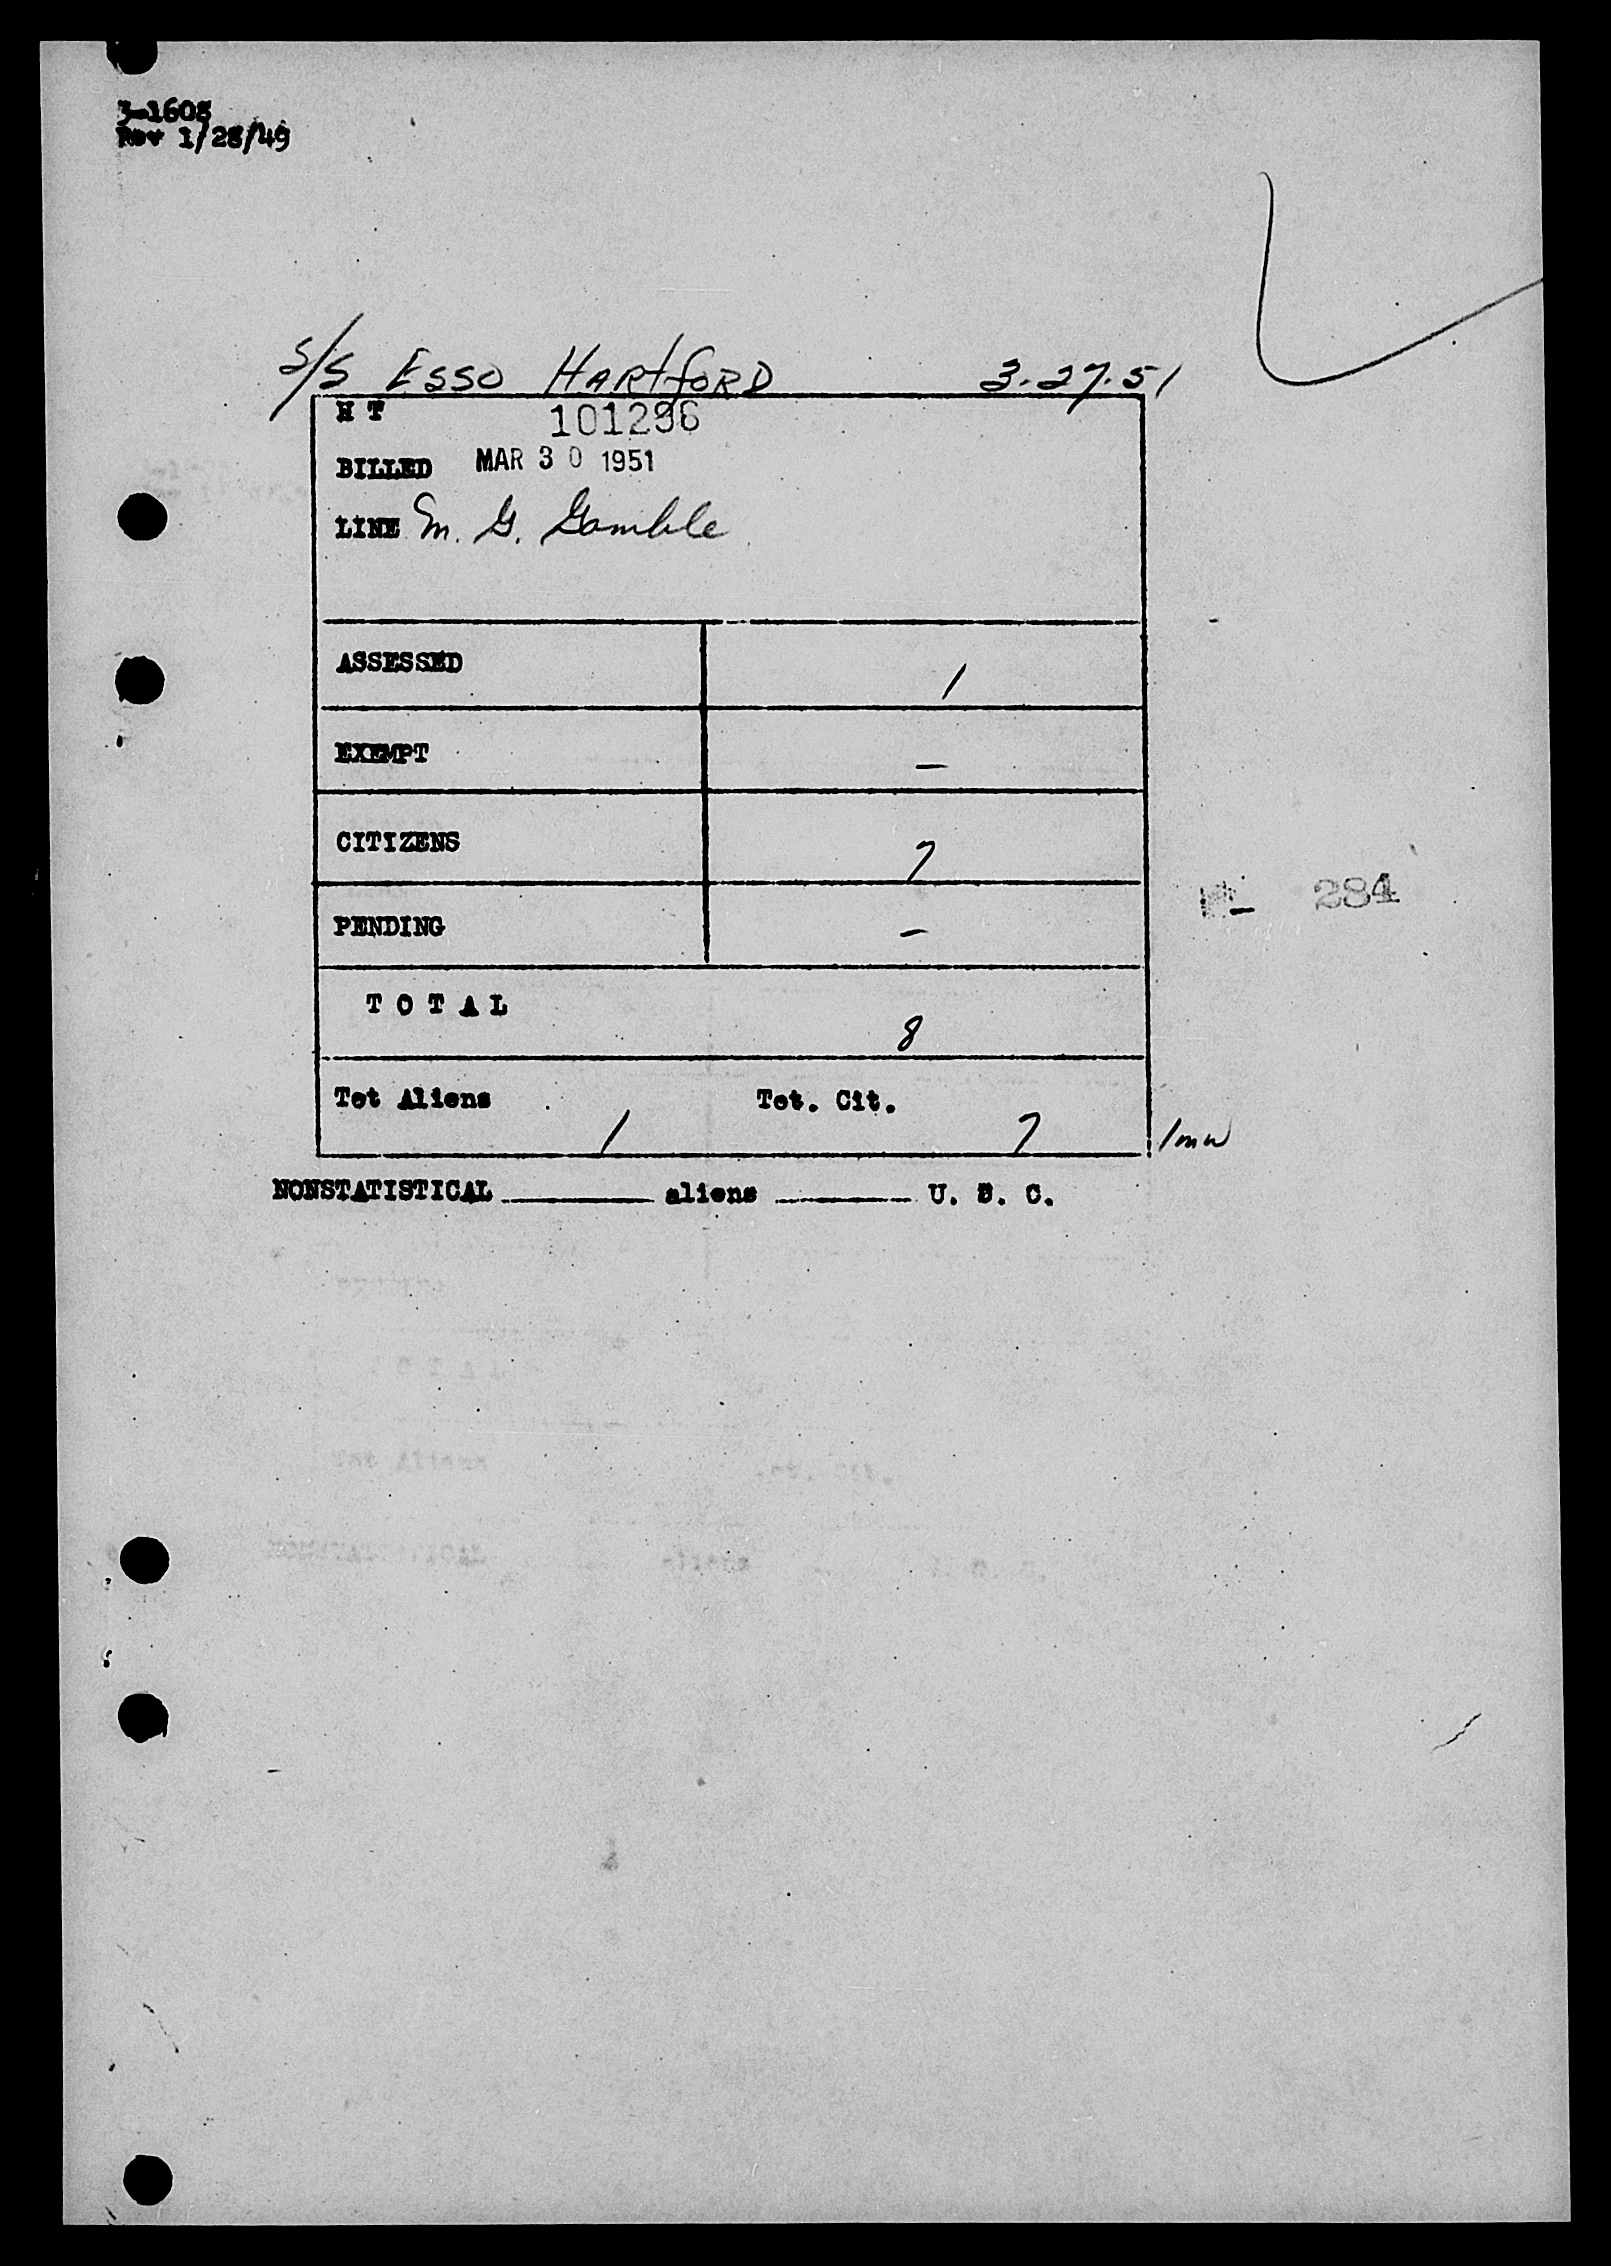 3-1608
Rev 1/28/49
S/S ESSO HARTFORD 3-27-51
H T 101296
BILLED MAR 30 1951
LINE M. G. Gamble
ASSESSED 1
EXEMPT –
CITIZENS 7
PENDING –
284
T O T A L 8
Tot Aliens 1 Tot. Cit. 7
NONSTATISTICAL ____ aliens ____ U. S. C.